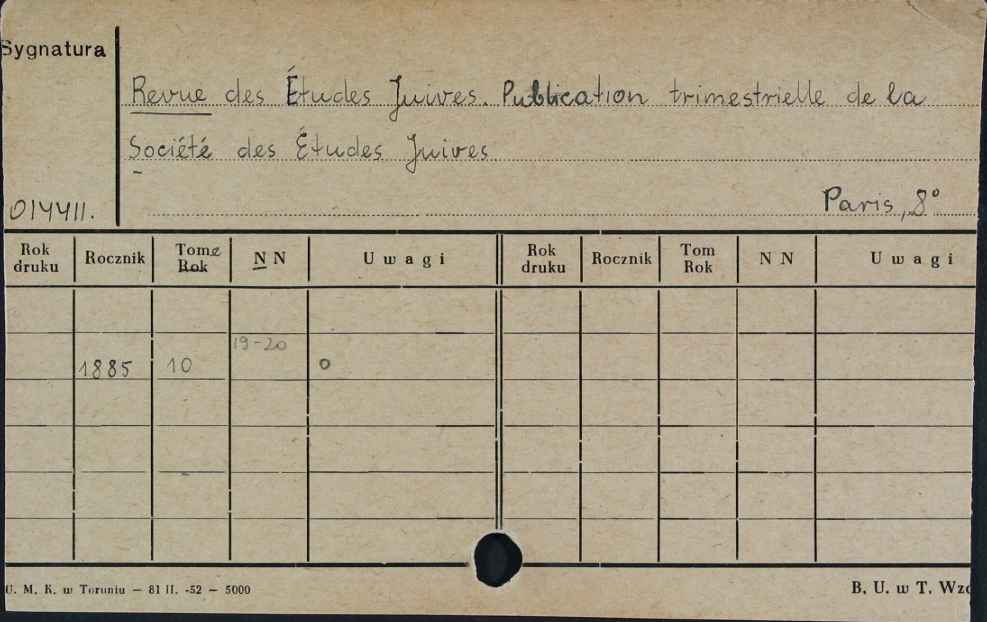 Sygnatura
Revue des Études Juives. Publication trimestrielle de la
Société des Études Juives
014411.
Paris, 8°
Rok druku Rocznik Tome Rok N N Uwagi Rok druku Rocznik Tom Rok N N Uwagi
19-20
1885 10 o
U. M. K. w Toruniu — 81 II. -52 — 5000
B. U. w T. Wzo